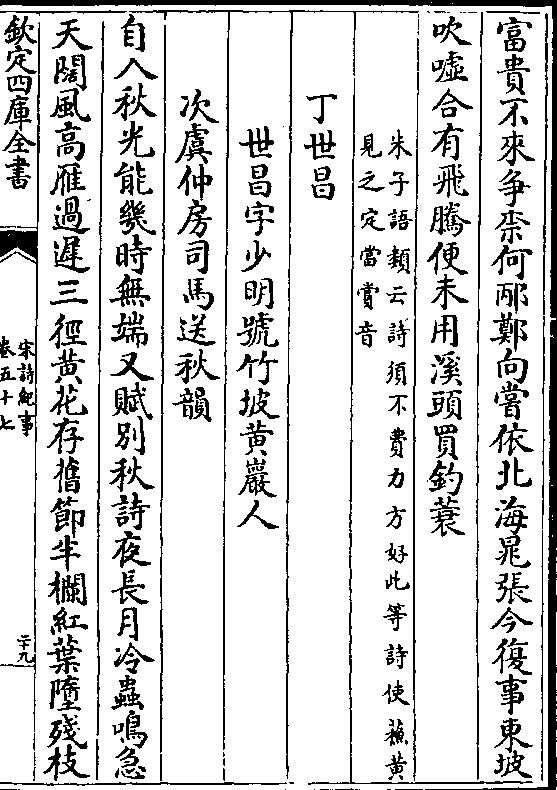 富貴不來爭柰何邴鄭向嘗依北海晁張今復事東坡
吹噓合有飛騰便未用溪頭買釣蓑
朱子語類云詩須不費力方好此等詩使蘇黃
見之定當賞音
丁世昌
世昌字少明號竹坡黃巖人
次虞仲房司馬送秋韻
自入秋光能幾時無端又賦別秋詩夜長月冷蟲鳴急
天闊風高雁過遲三徑黃花存舊節半欄紅葉墮殘枝
欽定四庫全書
宋詩紀事
卷五十七
二十九